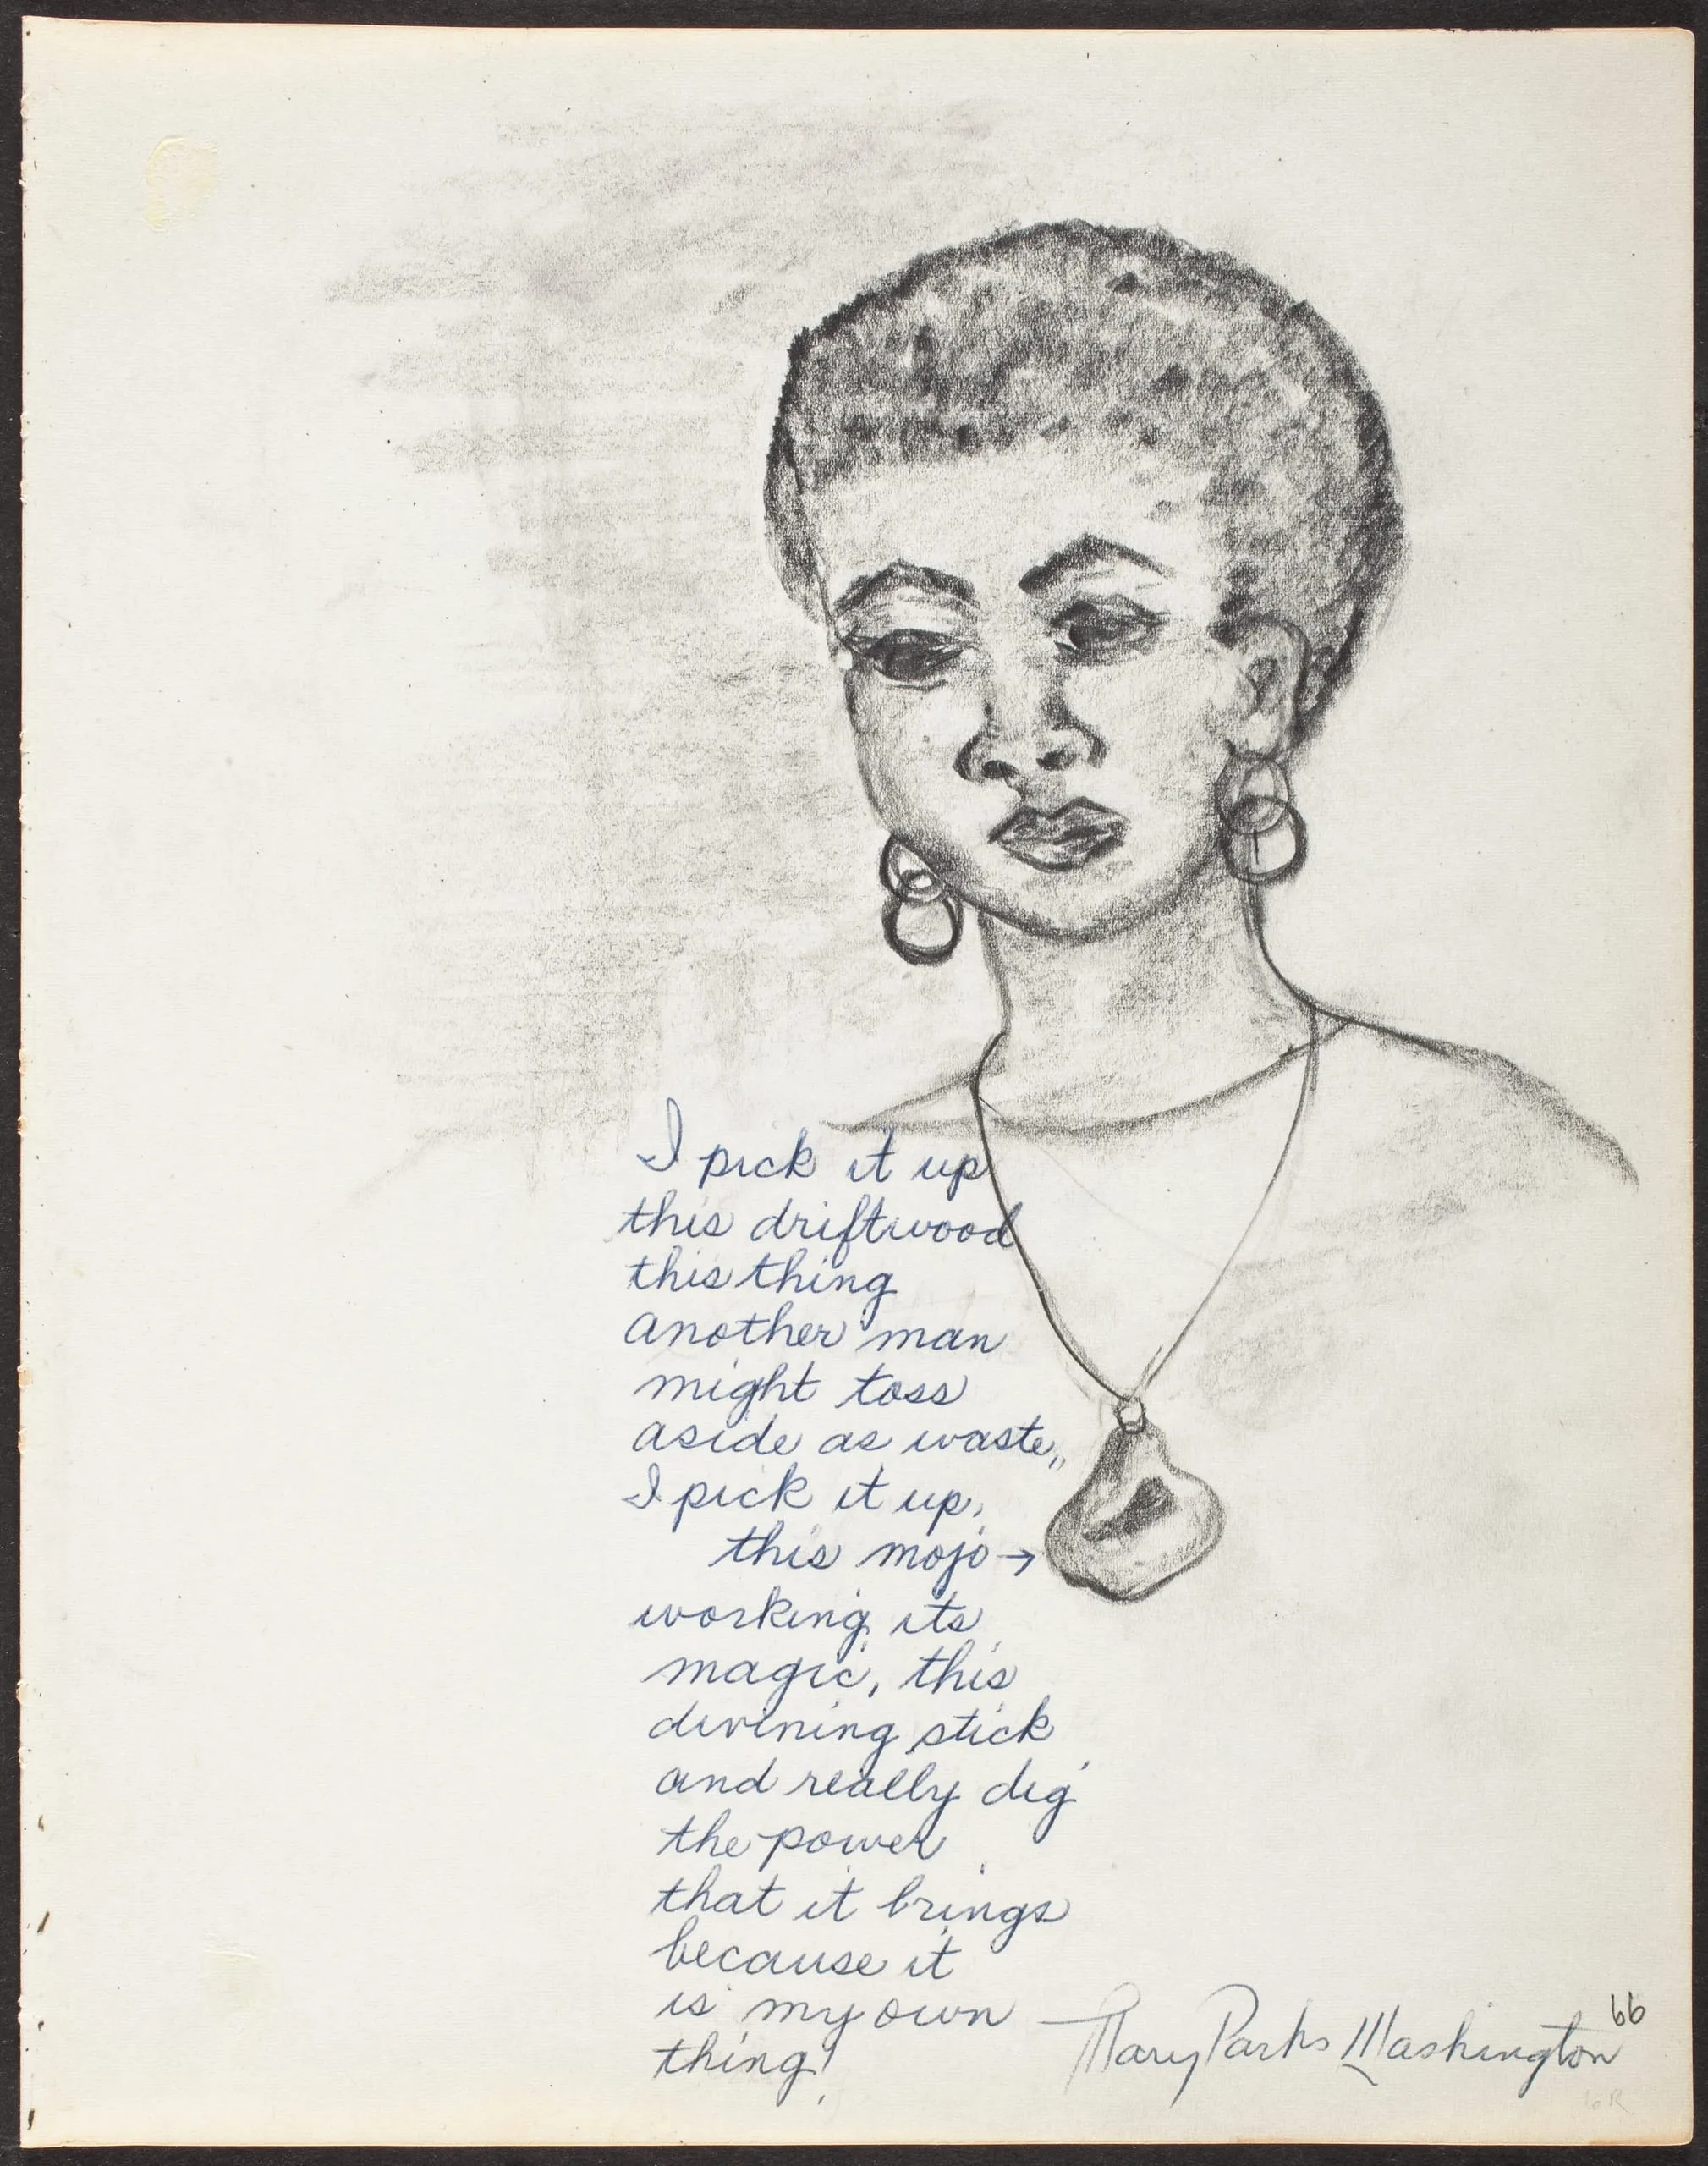 I pick it up
this driftwood
this thing
another man
might toss
aside as waste,,
I pick it up,
this mojo →
working its
magic, this
divining stick
and really dig
the power
that it brings
because it
is my own
thing!
Mary Parks Washington 66
6R